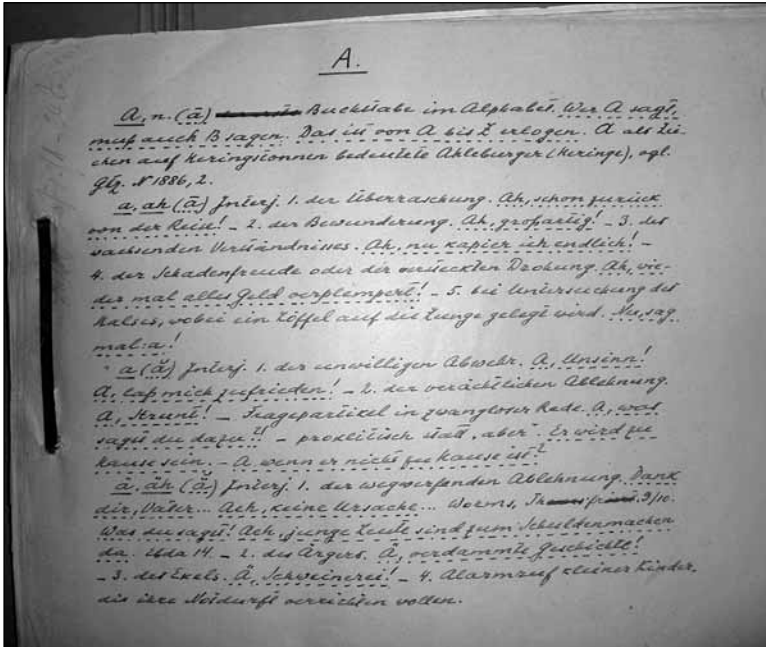 A.
A, n. (ā) Buchstabe im Alphabet. Wer A sagt,
muß auch B sagen. Das ist von A bis Z erlogen. A als Zei-
chen auf Heringstonnen bedeutete Ahleburger (Heringe), vgl.
Gtz. N 1886, 2.
a, ah (ā) Interj. 1. der Überraschung. Ah, schon zurück
von der Reise! – 2. der Bewunderung. Ah, großartig! – 3. des
wachsenden Verständnisses. Ah, nu kapier ich endlich! –
4. der Schadenfreude oder der versteckten Drohung. Ah, wie-
der mal alles Geld verplempert! – 5. bei Untersuchung des
Halses, wobei ein Löffel auf die Zunge gelegt wird. Nu, sag
mal: a!
a (ă) Interj. 1. der unwilligen Abwehr. A, Unsinn!
A, laß mich zufrieden! – 2. der verächtlichen Ablehnung.
A, Strunt! – Fragepartikel in zwangloser Rede. A, was
sagst du dazu?! – proklitisch statt „aber“. Er wird zu
Hause sein. – A, wenn er nicht zu Hause ist?
ä, äh (ä̆) Interj. 1. der wegwerfenden Ablehnung. Dank
dir, Vater... Äch, keine Ursache... Worms, 9/10.
Was du sagst! Äch, junge Leute sind zum Schuldenmachen
da. ebda 14. – 2. des Ärgers. Ä, verdammte Geschichte!
– 3. des Ekels. Ä, Schweinerei! – 4. Alarmruf kleiner Kinder,
die ihre Notdurft verrichten wollen.